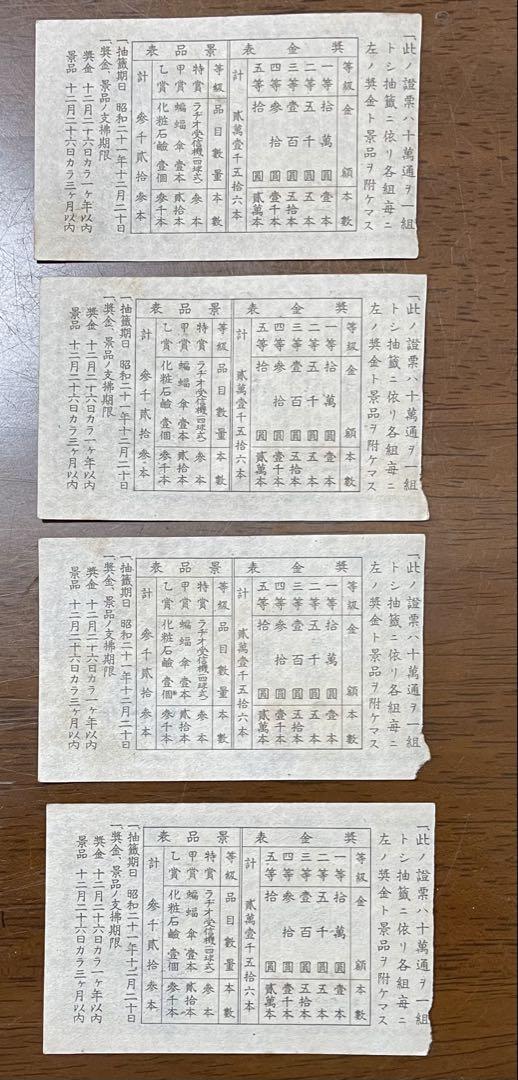 一、此ノ證票ハ十萬通ヲ一組
トシ抽籤ニ依リ各組每ニ
左ノ奬金ト景品ヲ附ケマス
奬金表
等級 金額 本數
一等 拾萬圓 壹本
二等 五千圓 五本
三等 壹百圓 五拾本
四等 参拾圓 壹千本
五等 拾圓 貳萬本
計 貳萬壹千五拾六本
景品表
等級 品目 數量 本數
特賞 ラヂオ受信機(四球式) 参本
甲賞 蝙蝠傘 壹本 貳拾本
乙賞 化粧石鹼 壹個 参千本
計 参千貳拾参本
一、抽籤期日 昭和二十一年十二月二十日
一、奬金、景品ノ支拂期限
奬金 十二月二十六日カラ一ヶ年以內
景品 十二月二十六日カラ三ヶ月以內
一、此ノ證票ハ十萬通ヲ一組
トシ抽籤ニ依リ各組每ニ
左ノ奬金ト景品ヲ附ケマス
奬金表
等級 金額 本數
一等 拾萬圓 壹本
二等 五千圓 五本
三等 壹百圓 五拾本
四等 参拾圓 壹千本
五等 拾圓 貳萬本
計 貳萬壹千五拾六本
景品表
等級 品目 數量 本數
特賞 ラヂオ受信機(四球式) 参本
甲賞 蝙蝠傘 壹本 貳拾本
乙賞 化粧石鹼 壹個 参千本
計 参千貳拾参本
一、抽籤期日 昭和二十一年十二月二十日
一、奬金、景品ノ支拂期限
奬金 十二月二十六日カラ一ヶ年以內
景品 十二月二十六日カラ三ヶ月以內
一、此ノ證票ハ十萬通ヲ一組
トシ抽籤ニ依リ各組每ニ
左ノ奬金ト景品ヲ附ケマス
奬金表
等級 金額 本數
一等 拾萬圓 壹本
二等 五千圓 五本
三等 壹百圓 五拾本
四等 参拾圓 壹千本
五等 拾圓 貳萬本
計 貳萬壹千五拾六本
景品表
等級 品目 數量 本數
特賞 ラヂオ受信機(四球式) 参本
甲賞 蝙蝠傘 壹本 貳拾本
乙賞 化粧石鹼 壹個 参千本
計 参千貳拾参本
一、抽籤期日 昭和二十一年十二月二十日
一、奬金、景品ノ支拂期限
奬金 十二月二十六日カラ一ヶ年以內
景品 十二月二十六日カラ三ヶ月以內
一、此ノ證票ハ十萬通ヲ一組
トシ抽籤ニ依リ各組每ニ
左ノ奬金ト景品ヲ附ケマス
奬金表
等級 金額 本數
一等 拾萬圓 壹本
二等 五千圓 五本
三等 壹百圓 五拾本
四等 参拾圓 壹千本
五等 拾圓 貳萬本
計 貳萬壹千五拾六本
景品表
等級 品目 數量 本數
特賞 ラヂオ受信機(四球式) 参本
甲賞 蝙蝠傘 壹本 貳拾本
乙賞 化粧石鹼 壹個 参千本
計 参千貳拾参本
一、抽籤期日 昭和二十一年十二月二十日
一、奬金、景品ノ支拂期限
奬金 十二月二十六日カラ一ヶ年以內
景品 十二月二十六日カラ三ヶ月以內